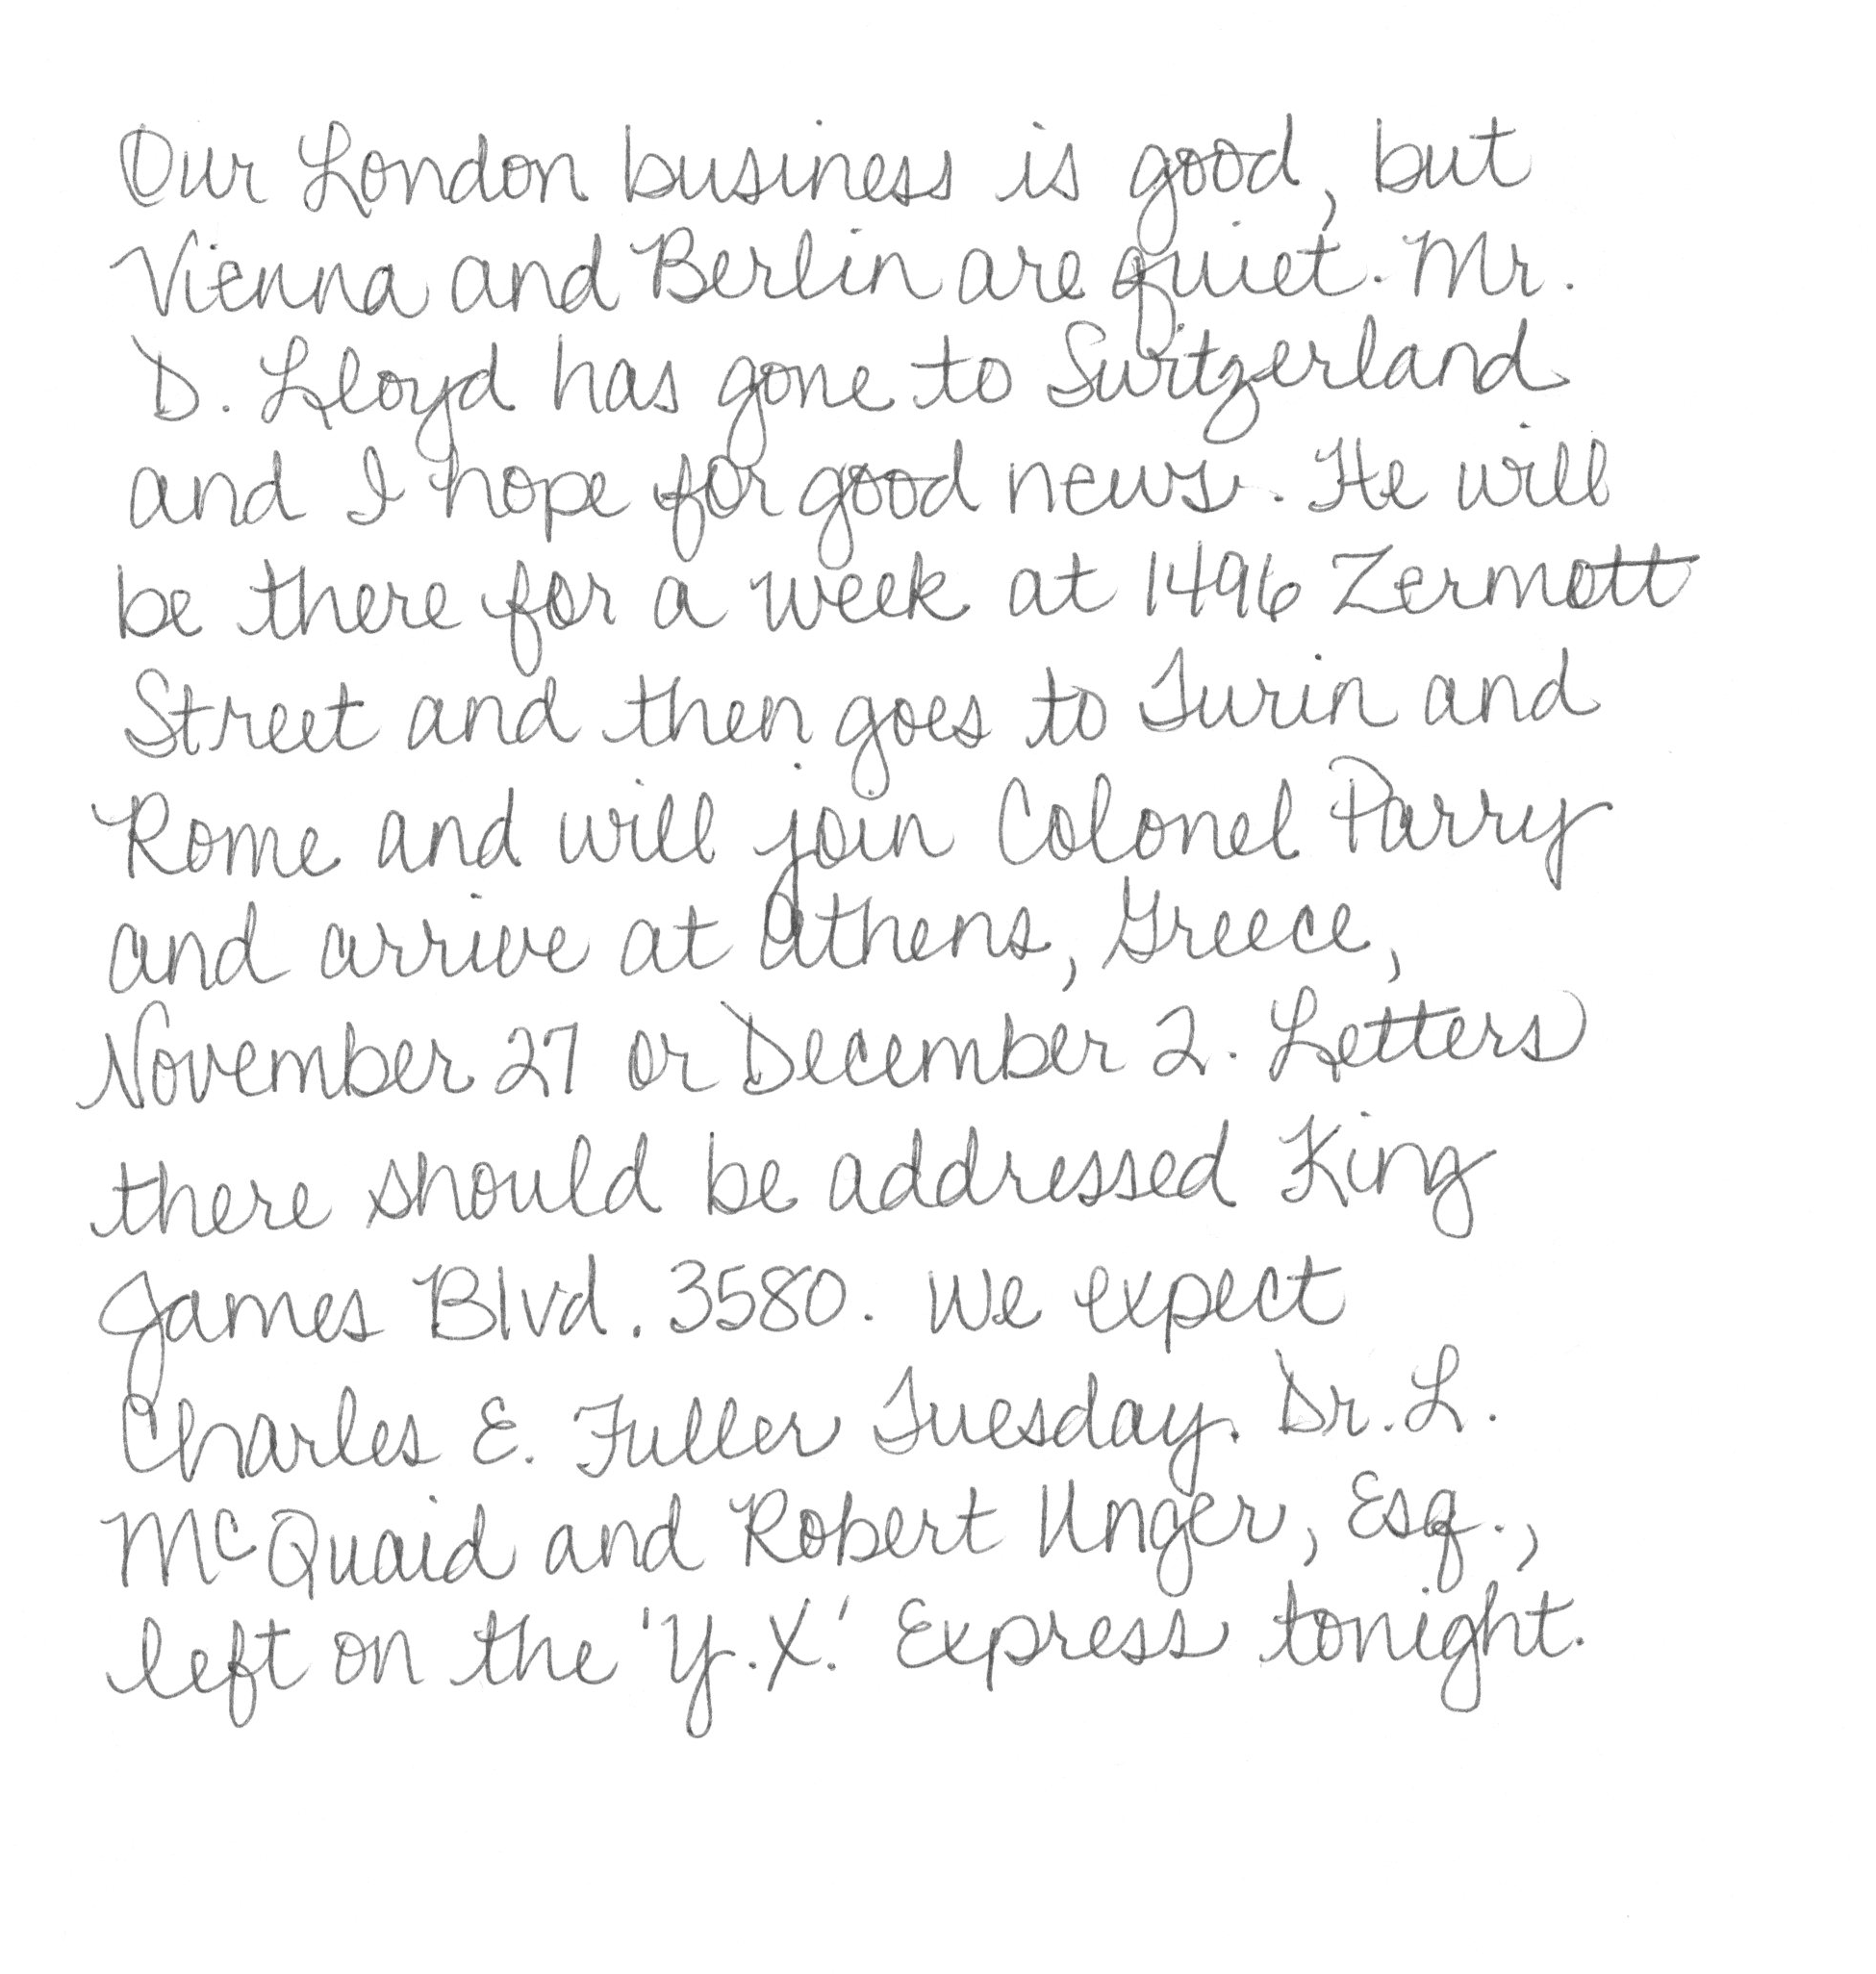 Our London business is good, but
Vienna and Berlin are quiet. Mr.
D. Lloyd has gone to Switzerland
and I hope for good news. He will
be there for a week at 1496 Zermott
Street and then goes to Turin and
Rome and will join Colonel Parry
and arrive at Athens, Greece,
November 27 or December 2. Letters
there should be addressed King
James Blvd. 3580. We expect
Charles E. Fuller Tuesday. Dr. L.
McQuaid and Robert Unger, Esq.,
left on the 'Y.X.' Express tonight.